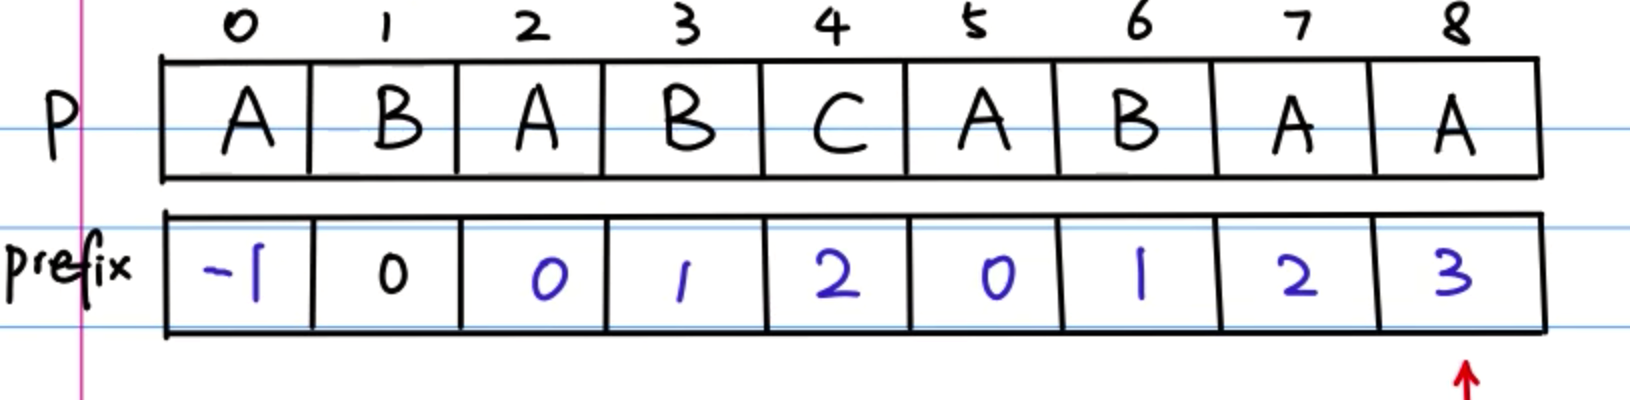 0 1 2 3 4 5 6 7 8
P A B A B C A B A A
prefix -1 0 0 1 2 0 1 2 3